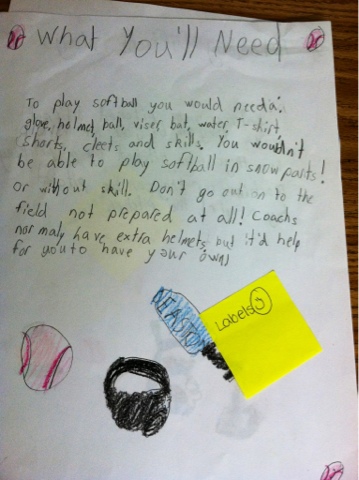 What You'll Need
To play softball you would need a:
glove, helmet, ball, viser, bat, water, T-shirt,
shorts, cleets and skills. You wouldn't
be able to play softball in snowpants!
Or without skill. Don't go out on to the
field not prepared at all! Coachs
normaly have extra helmets but it'd help
for you to have your own!
EASTON
Labels